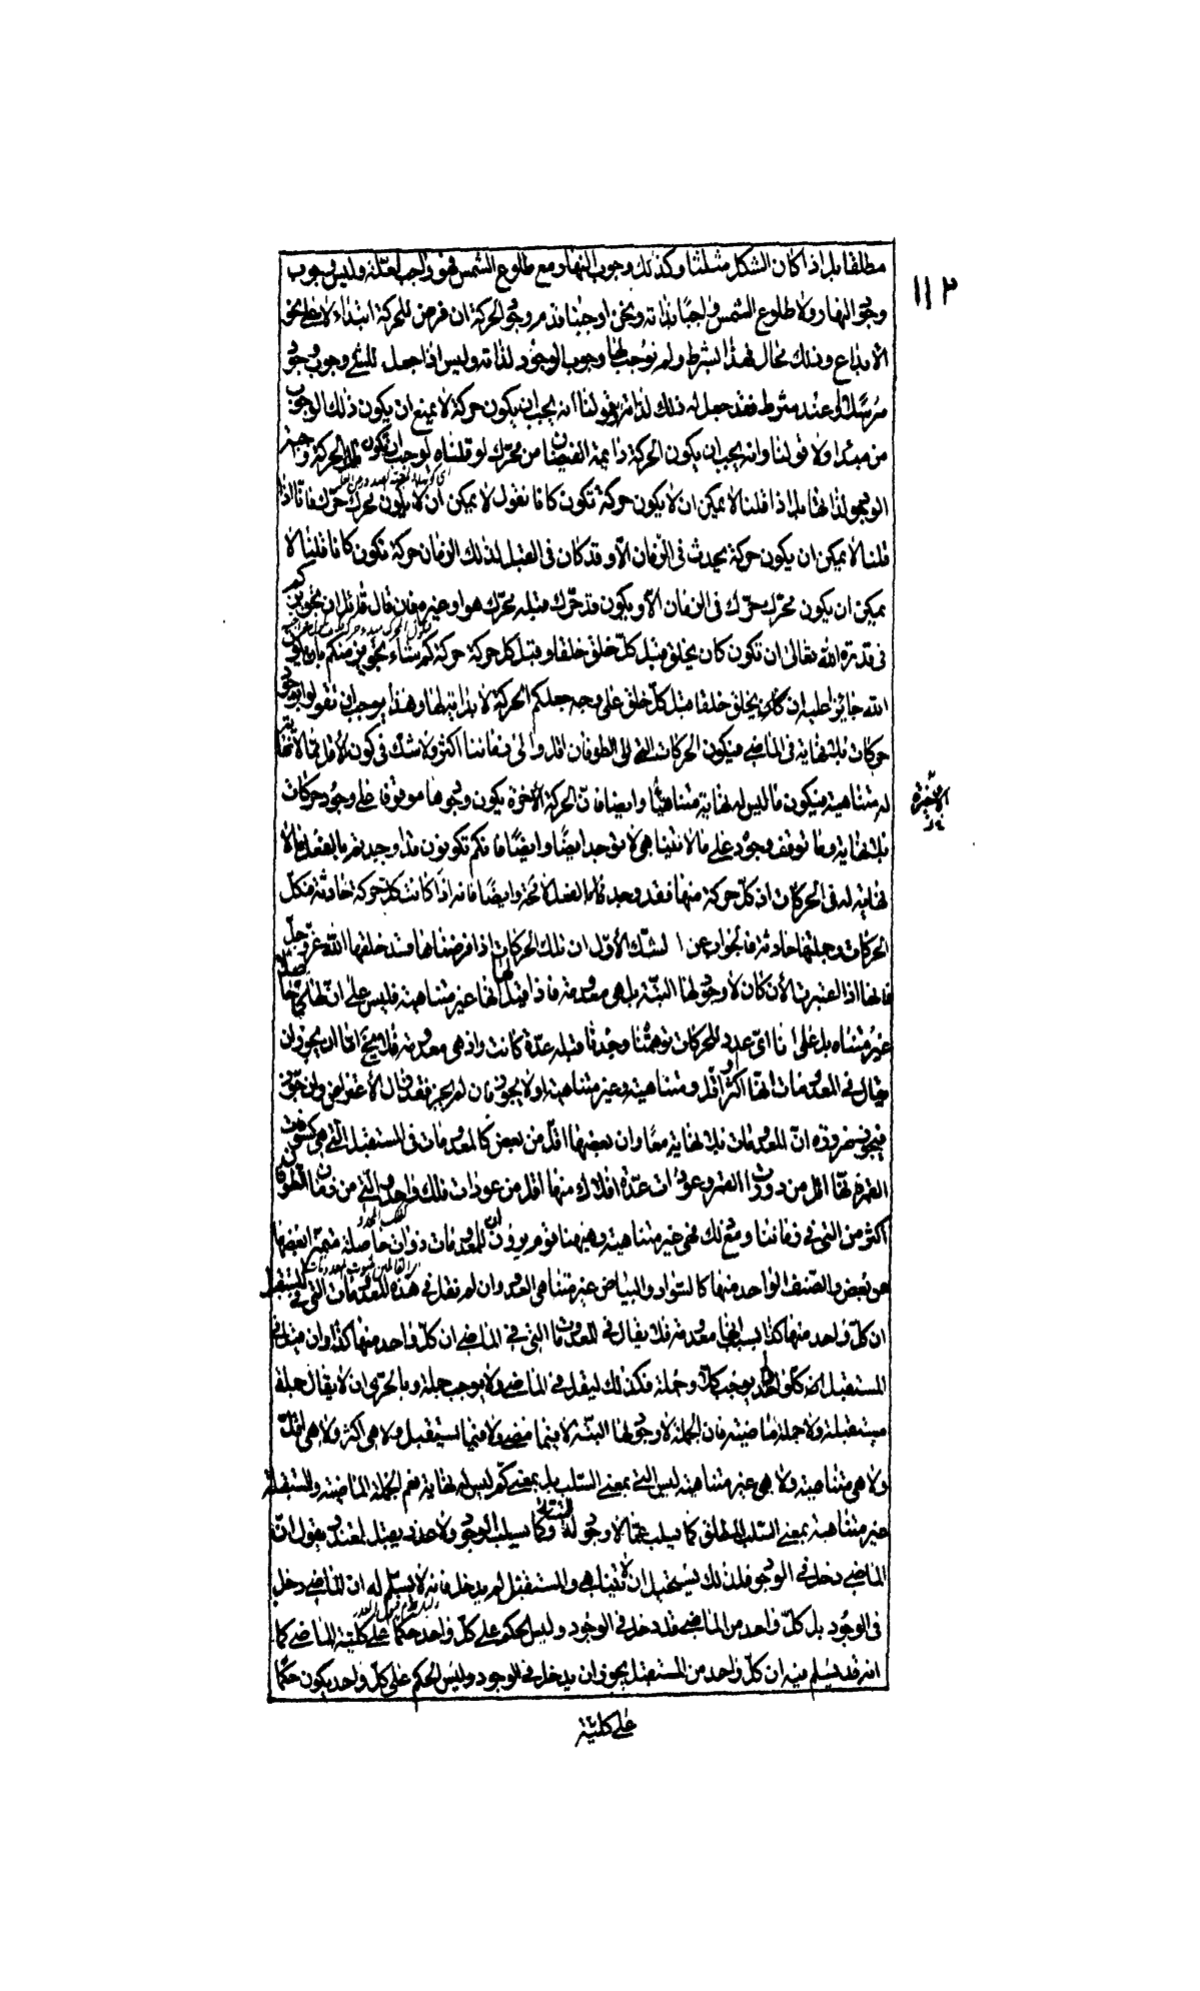 ١١٢
مطلقا بل اذا كان الشكل مثلثا وكذلك وجوب النهار مع طلوع الشمس فهو واجب لعلة وليس بوجوب
وجود النهار ولا طلوع الشمس واجبا بذاته ونحن اوجبنا قدم وجود الحركة ان فرض للحركة ابتداء لا على نحو
الابداع وذلك محال فهذا الشرط ولم نوجب لها وجوب الوجود لذاته وليس اذا جعل للشئ وجوب وجود
مرسلا او عند شرط فقد جعل له ذلك لذاته فقولنا انه يجب ان يكون حركة لا يمنع ان يكون ذلك الوجوب
من مبدا ولا قولنا وانه يجب ان يكون الحركة دائمة الفيضان من محرك لو قلناه لوجب ان تكون تلك الحركة واجبة
الوجود لذاتها بل اذا قلنا لا يمكن ان لا يكون حركة تكون كانا نقول لا يمكن ان لا يكون محرك حرك فانا اذا
قلنا لا يمكن ان يكون حركة يحدث في الزمان الا وقد كان في القبل لذلك الزمان حركة تكون كانا قلنا لا
يمكن ان يكون محرك حرك في الزمان الا ويكون قد حرك قبله محرك هو او غيره فان قال قائل ان تجويزكم
في قدرة الله تعالى ان تكون كان يخلق قبل كل خلق خلقا وقبل كل حركة حركة كم شاء تجويز منكم بان
الله جائز عليه ان كان يخلق خلقا قبل كل خلق على وجه جعلكم الحركة لا بداية لها وهذا يوجب ان تقولوا بوجود
حركات بلا نهاية في الماضي فيكون الحركات التي الى الطوفان اقل والى زماننا اكثر ولا شك في كون الاقل مما لا نهاية
له متناهية فيكون ما ليس له نهاية متناهيا وايضا فان الحركة الأخيرة يكون وجودها موقوفا على وجود حركات
بلا نهاية وما توقف وجوده على ما لا يتناهى لا يوجد ايضا وايضا فانكم تكونون قد اوجدتم بالفعل ما لا
نهاية له في الحركات اذ كل حركة منها فقد وجد لا محالة وايضا فانه اذا كانت كل حركة حادثة فكل
الحركات وجملتها حادثة فالجواب عن الشك الاول ان تلك الحركات اذا فرضناها قد خلقها الله عز وجل
فانها اذا اعتبرت الآن كان لا وجود لها البتة بل هي معدومة فاذا قيل لها انها غير متناهية فليس على ان لها
غير متناه بل على انا اي عدد للحركات توهمنا وجدنا قبله عدة كانت واذ هي معدومة فلا يخ اما ان يجوز ان
يقال في المعدومات انها اكثر واقل ومتناهية وغير متناهية اولا يجوز فان لم يجز فقد زال الاعتراض وان جوز
فيجوز ضرورة ان المعدومات بلا نهاية معا وان بعضها اقل من بعض كالمعدومات في المستقبل التي هي كسوفات
القمر فانها اقل من دورات القمر وعودات عدة افلاك منها اقل من عودات فلك واحد والتي من زمان الطوفان
اكثر من التي في زماننا ومع ذلك فهي غير متناهية وههنا قوم يرون ان للمعدومات ذوات حاصلة متميزا بعضها
عن بعض والصنف الواحد منها كالسواد والبياض غير متناهي العدد وان لم نقل في هذه المعدومات التي في المستقبل
ان كل واحد منها كذا بسبب انها معدومة فلا يقال في المعدومات التي في الماضي ان كل واحد منها كذا وان قيل في
المستقبل ان كل واحد لم يوجب كلا وجملة فكذلك ليقل في الماضي ولا يوجب جملة وبالحرى ان لا يقال جملة
مستقبلة ولا جملة ماضية فان الجملة لا وجود لها البتة لا فيما مضى ولا فيما يستقبل ولا هي اكثر ولا هي اقل
ولا هي متناهية ولا هي غير متناهية ليس التي بمعنى السلب بل بمعنى كم ليس له نهاية نعم الجملة الماضية والمستقبلة
غير متناهية بمعنى السلب المطلق كما يسلب عما لا وجود له التناهي وكما يسلب الوجود ولا عذر يقبل لمعتذر يقول ان
الماضي دخل في الوجود فلذلك يستحيل ان لا يتناهى والمستقبل لم يدخل فانه لا يسلم له ان الماضي دخل
في الوجود بل كل واحد من الماضي قد دخل في الوجود وليس الحكم على كل واحد حكما على كلية الماضي كما
انه قد يسلم فيه ان كل واحد من المستقبل يجوز ان يدخل في الوجود وليس الحكم على كل واحد يكون حكما
على كلية
الأخيرة